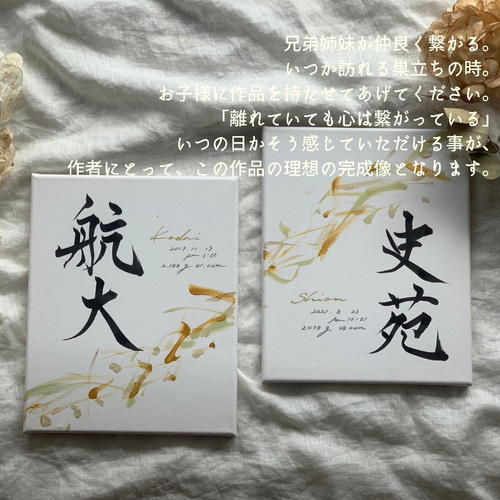 兄弟姉妹が仲良く繋がる。
いつか訪れる巣立ちの時。
お子様に作品を持たせてあげてください。
「離れていても心は繋がっている」
いつの日かそう感じていただける事が、
作者にとって、この作品の理想の完成像となります。
航大
Kodai
史苑
Shion